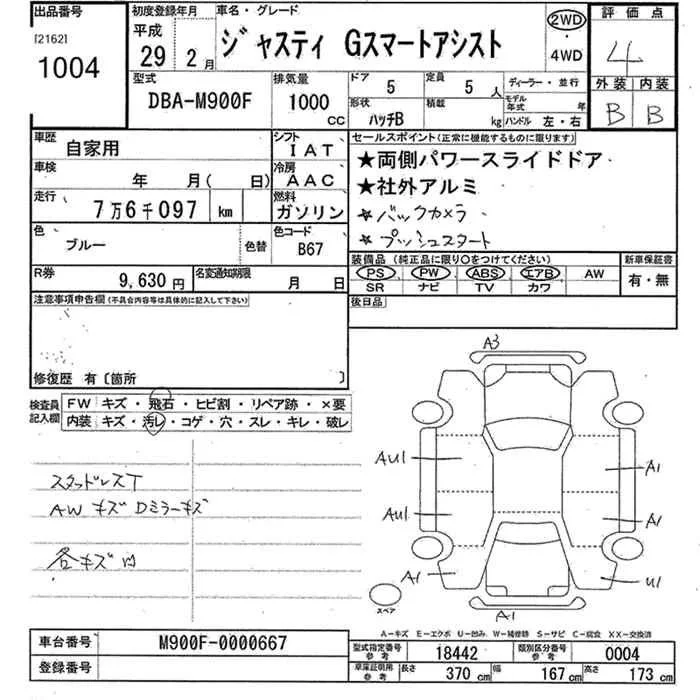 出品番号 初度登録年月 車名・グレード 評価点
[2162] 1004
平成 29 2月
ジャスティ Gスマートアシスト
2WD ・ 4WD
4
型式 DBA-M900F
排気量 1000 CC
ドア 5 定員 5 人
ディーラー・並行
外装 内装
B B
形状 ハッチB 積載 kg
モデル年式 年
ハンドル 左・右
車歴 自家用
シフト IAT
セールスポイント(正常に機能するものに限ります)
★両側パワースライドドア
★社外アルミ
★バックカメラ
★プッシュスタート
車検 年 月( 日)
冷房 AAC
走行 7万6千097 km
燃料 ガソリン
色 ブルー 色替
色コード B67
装備品(純正品に限り〇をつけてください) 新車保証書
PS PW ABS エアB AW
SR ナビ TV カワ
有・無
R券 9,630 円 名変通知期限 月 日
後日品
注意事項申告欄(不具合内容等は具体的に記入して下さい)
修復歴 有〔箇所 〕
検査員記入欄
FW キズ・飛石・ヒビ割・リペア跡・×要
内装 キズ・汚レ・コゲ・穴・スレ・キレ・破レ
スタッドレスT
AW キズ Dミラーキズ
各キズ凹
A3
AU1 A1
AU1 A1
A1 U1
スペア
A1
A-キズ E-エクボ U-凹み W-補修跡 S-サビ C-腐食 XX-交換済
車台番号 M900F-0000667
登録番号
型式指定番号 参考 18442 類別区分番号 参考 0004
車庫証明用 参考 長さ 370 cm 幅 167 cm 高さ 173 cm